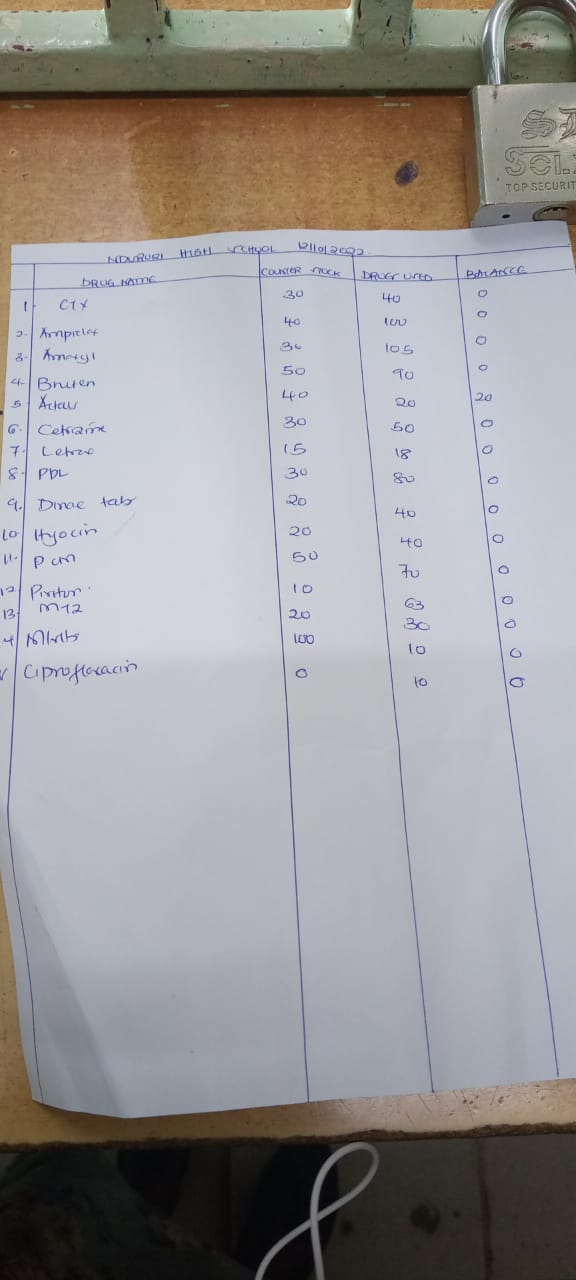 SOL
TOP SECURIT
NDURURI HIGH SCHOOL 12/10/2022.
DRUG NAME COUNTER STOCK DRUGS USED BALANCE
1. CTX 30 40 0
2. Ampiclox 40 100 0
3. Amoxyl 30 105 0
4. Brufen 50 90 0
5. Actal 40 20 20
6. Cetrizine 30 50 0
7. 15 18 0
8. PDL 30 80 0
9. tabs 20 40 0
10. Hyocin 20 40 0
11. Pcm 50 70 0
12. Piriton. 10 63 0
13. 20 30 0
4 100 10 0
Ciprofloxacin 0 10 0